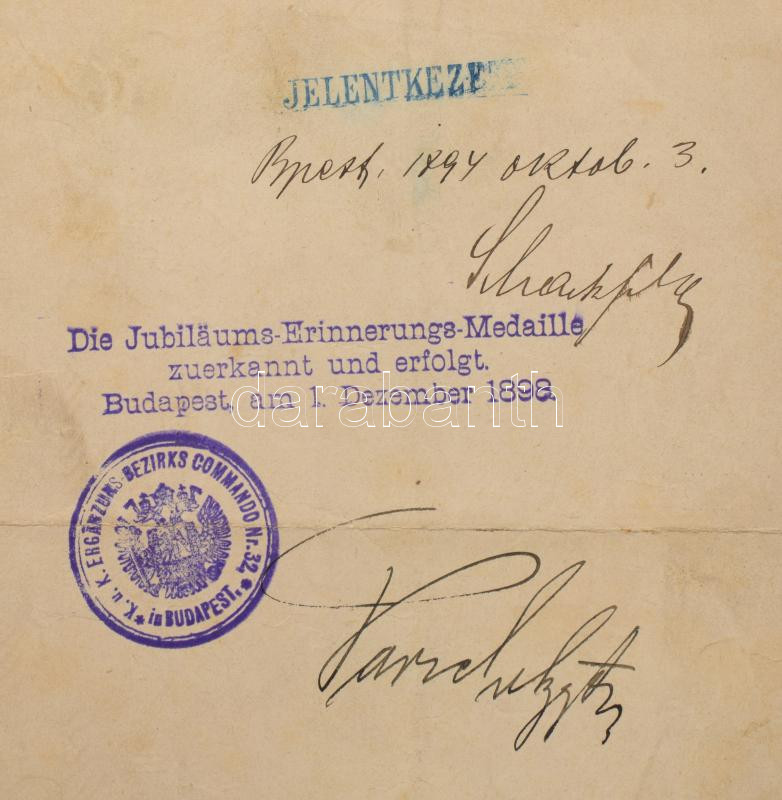 JELENTKEZE
Bpest, 1894 oktob. 3.
Die Jubiläums-Erinnerungs-Medaille
zuerkannt und erfolgt.
Budapest, am 1. Dezember 1898.
darabanth
K. u. K. ERGÄNZUNS-BEZIRKS COMMANDO Nr. 32.
* in BUDAPEST. *